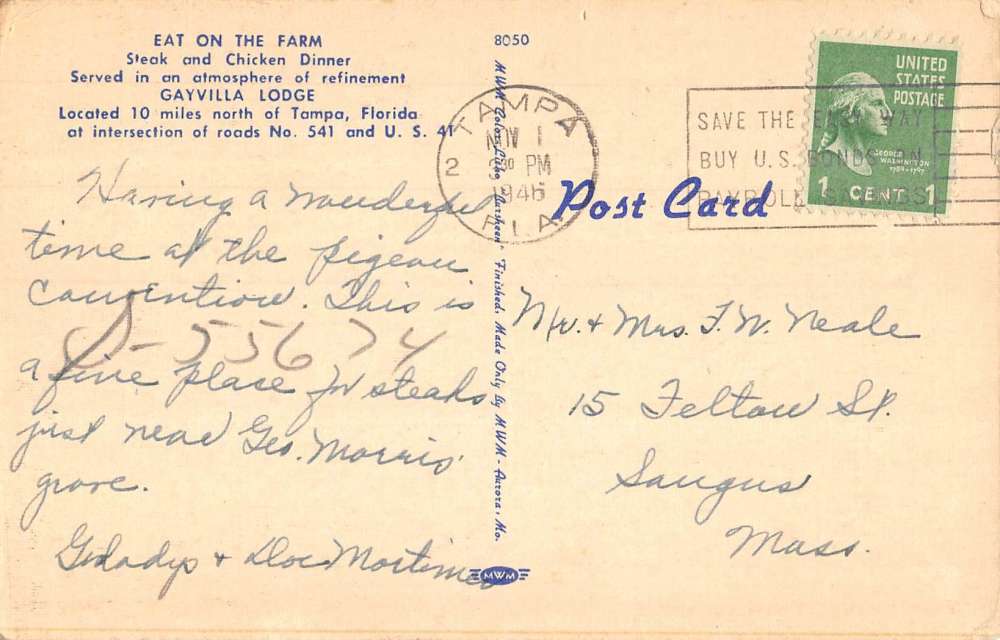 EAT ON THE FARM
Steak and Chicken Dinner
Served in an atmosphere of refinement
GAYVILLA LODGE
Located 10 miles north of Tampa, Florida
at intersection of roads No. 541 and U. S. 41
8050
MWM Color-Litho "Garsheen" Finished. Made Only by MWM - Aurora, Mo.
MWM
TAMPA
NOV 1
2 30 PM
1946
FLA.
SAVE THE EASY WAY
BUY U.S. BONDS ON
PAYROLL SAVINGS
UNITED
STATES
POSTAGE
GEORGE
WASHINGTON
1789-1797
1 CENT 1
Post Card
Having a wonderful
time at the pigeon
convention. This is
a fine place for steaks
just near Geo. Morris'
grove.
Gladys + Doc Mortimer
S-55674
Mr. + Mrs. F. W. Neale
15 Felton St.
Saugus
Mass.